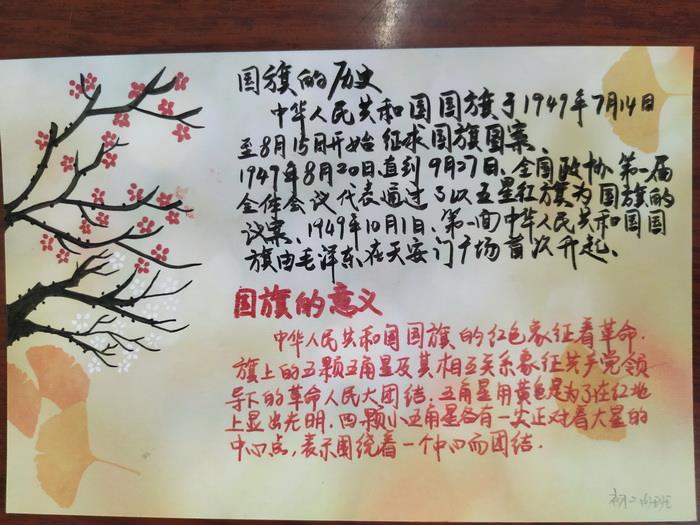 国旗的历史
中华人民共和国国旗于1949年7月14日
至8月15日开始征求国旗图案、
1949年8月20日直到9月27日、全国政协第一届
全体会议代表通过了以五星红旗为国旗的
议案、1949年10月1日、第一面中华人民共和国国
旗由毛泽东在天安门广场首次升起、
国旗的意义
中华人民共和国国旗的红色象征着革命.
旗上的五颗五角星及其相互关系象征共产党领
导下的革命人民大团结.五角星用黄色是为了在红地
上显出光明.四颗小五角星各有一尖正对着大星的
中心点,表示围绕着一个中心而团结.
初二